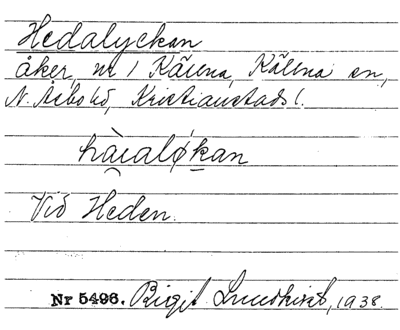 Hedalyckan
åker, nr 1 Källna, Källna sn,
N. Åsbo hd, Kristianstads l.
hàialǿkan
Vid Heden.
Nr 5496. Birgit Lundkvist, 1938.